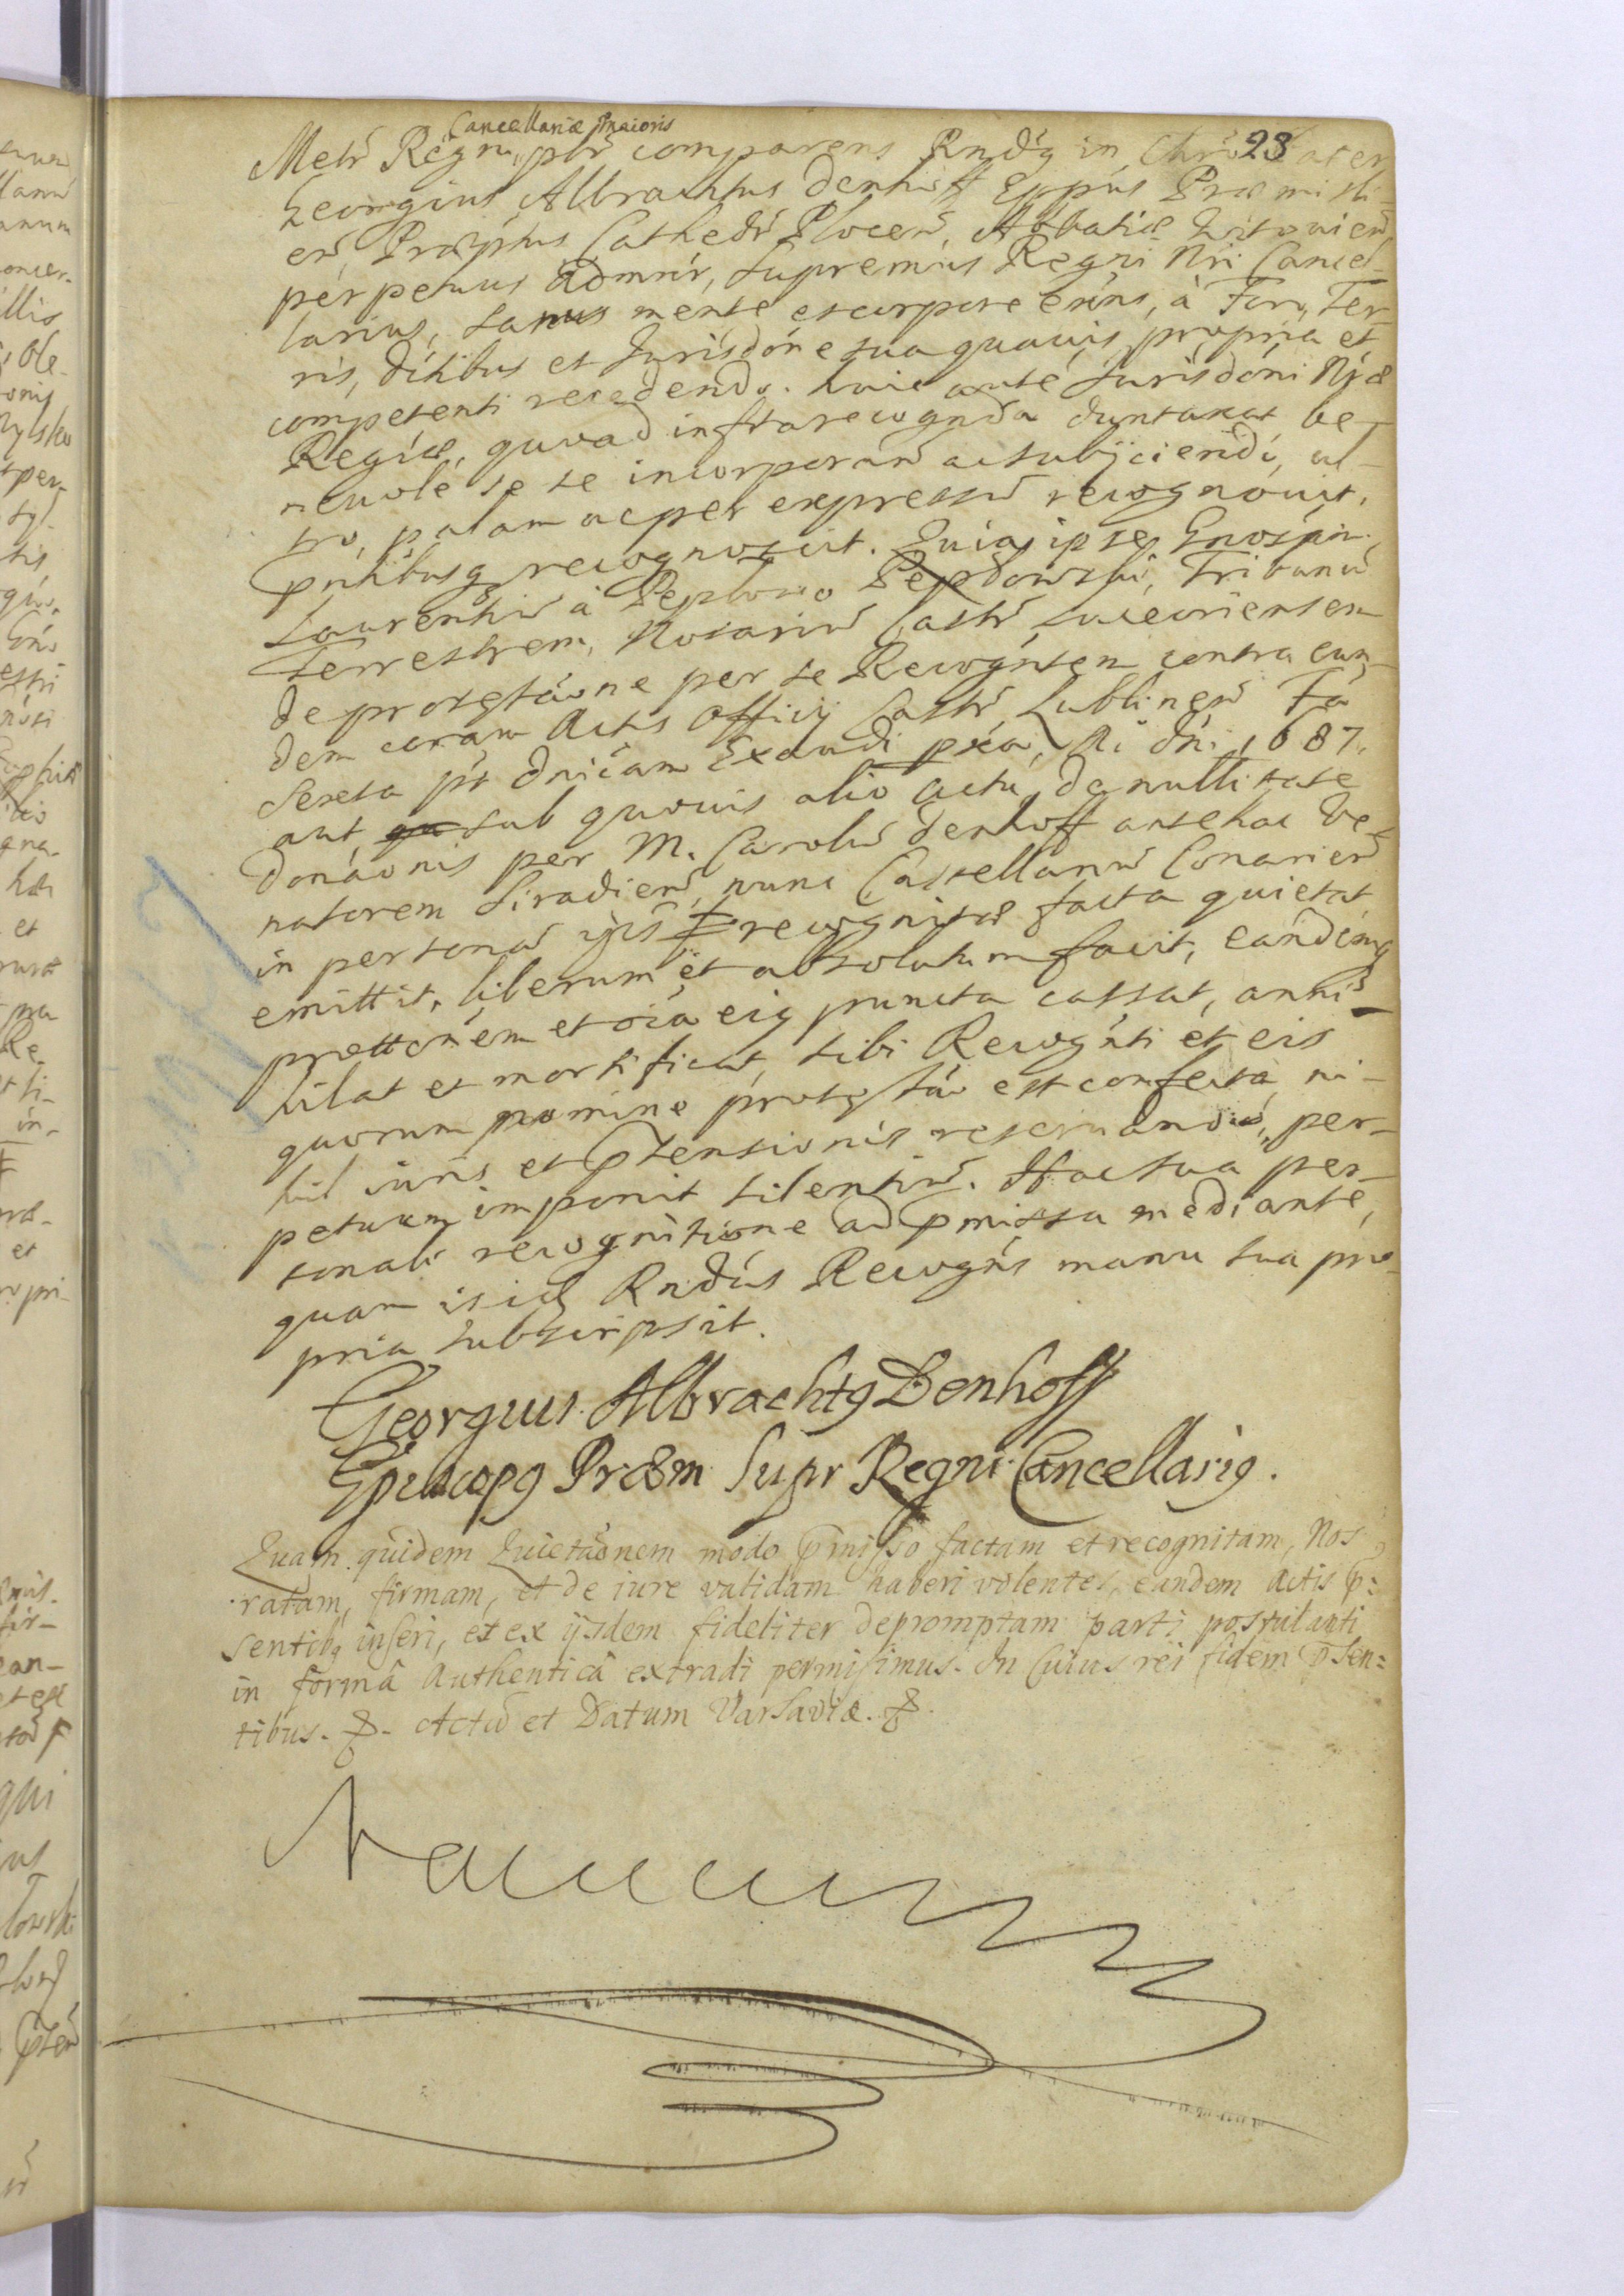 23
Cancellariæ Maioris
Metr̃ Regni, plr̃ comparens Rndg̃ in Chrõ Pater
Georgius Albrachtus Denhoff Eppus Præmisli-
eñ, Præptus Cathedr̃ Ploceñ, Abbatiæ
perpetuus Admñr, Supremus Regni Nri Cancel-
larius, sanus mente et corpore exñs, à Foro, Ter-
ris, Ditibus et Jurisdóne sua quavis propria et
competenti recedendo. huic aute Jurisdóni Nræ
Regiæ, quoad infra recognda duntaxat be-
nevole se se incorporand̃ ac subijciendó, ul-
tro, palam ac per expressũ recognovit,
pñtibusq recognoscit. Quia ipse Gnosum
Laurentiũ à Peplowo Peplowski, Tribunũ
Terrestrem, Notariũ Castr̃ Luceoriensem
de protestáone per se Recogntem contra eun-
dem coram Actis Officij Castr̃ Lublineñ Fa
Sexta pt̃ Dnicam Exaudi pxa, Ai Dni 1687.
aut sub quovis alio actu, de nullitate
donáonis per M. Carolũ Denhoff antehac Ve-
natorem Siradieñ, nunc Castellanũ Conarieñ
in personã recognitæ facta quietat
emittit, liberum et absolutum facit, eandemq
prottonem et oia eiq puncta cassat, annihi-
hilat et mortificat, sibi Recognti et eis
quorum nomine protestáo est confecta, ni-
hil iuris et prtensionis reservando, per-
petuum imponit silentiũ. Hac sua per-
sonali recognitione ad pmissa mediante,
quam isid Rndus Recogns manu sua pro-
pria subscripsit.
Georgius Albrachtq Denhoff
Episcopq Præm Supr Regni Cancellariq.
Quam quidem Quietaonem modo pmisso factam et recognitam, Nos
ratam, firmam, et de iure validam haberi volentes, eandem Actis p:
sentibq inseri, et ex ijsdem fideliter depromptam parti postulanti
in formâ Authenticâ extradi permisimus. In Cuius rei fidem psen:
tibus. &. Actũ et Datum Varsaviæ. &.